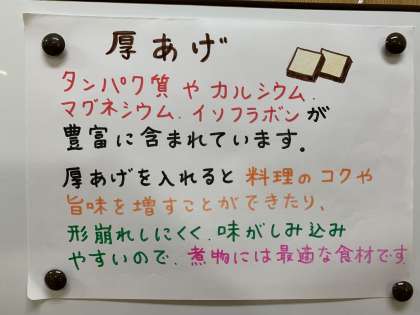 厚あげ
タンパク質 や カルシウム、
マグネシウム、イソフラボン が
豊富に含まれています。
厚あげを入れると 料理のコクや
旨味を増すことができたり、
形崩れしにくく、味がしみ込み
やすいので、煮物には最適な食材です